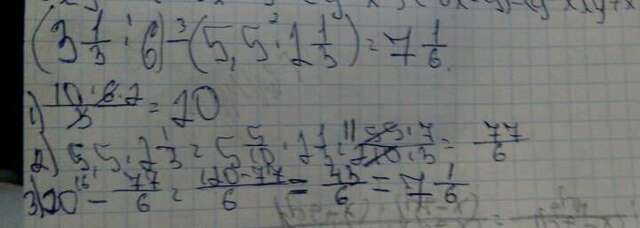 (3 1/3 · 6) - (5,5 · 2 1/3) = 7 1/6
1) 10·6·2/3 = 20
2) 5,5 · 2 1/3 = 5 5/10 · 2 1/3 = 55·7/10·3 = 77/6
3) 20 - 77/6 = 120-77/6 = 43/6 = 7 1/6